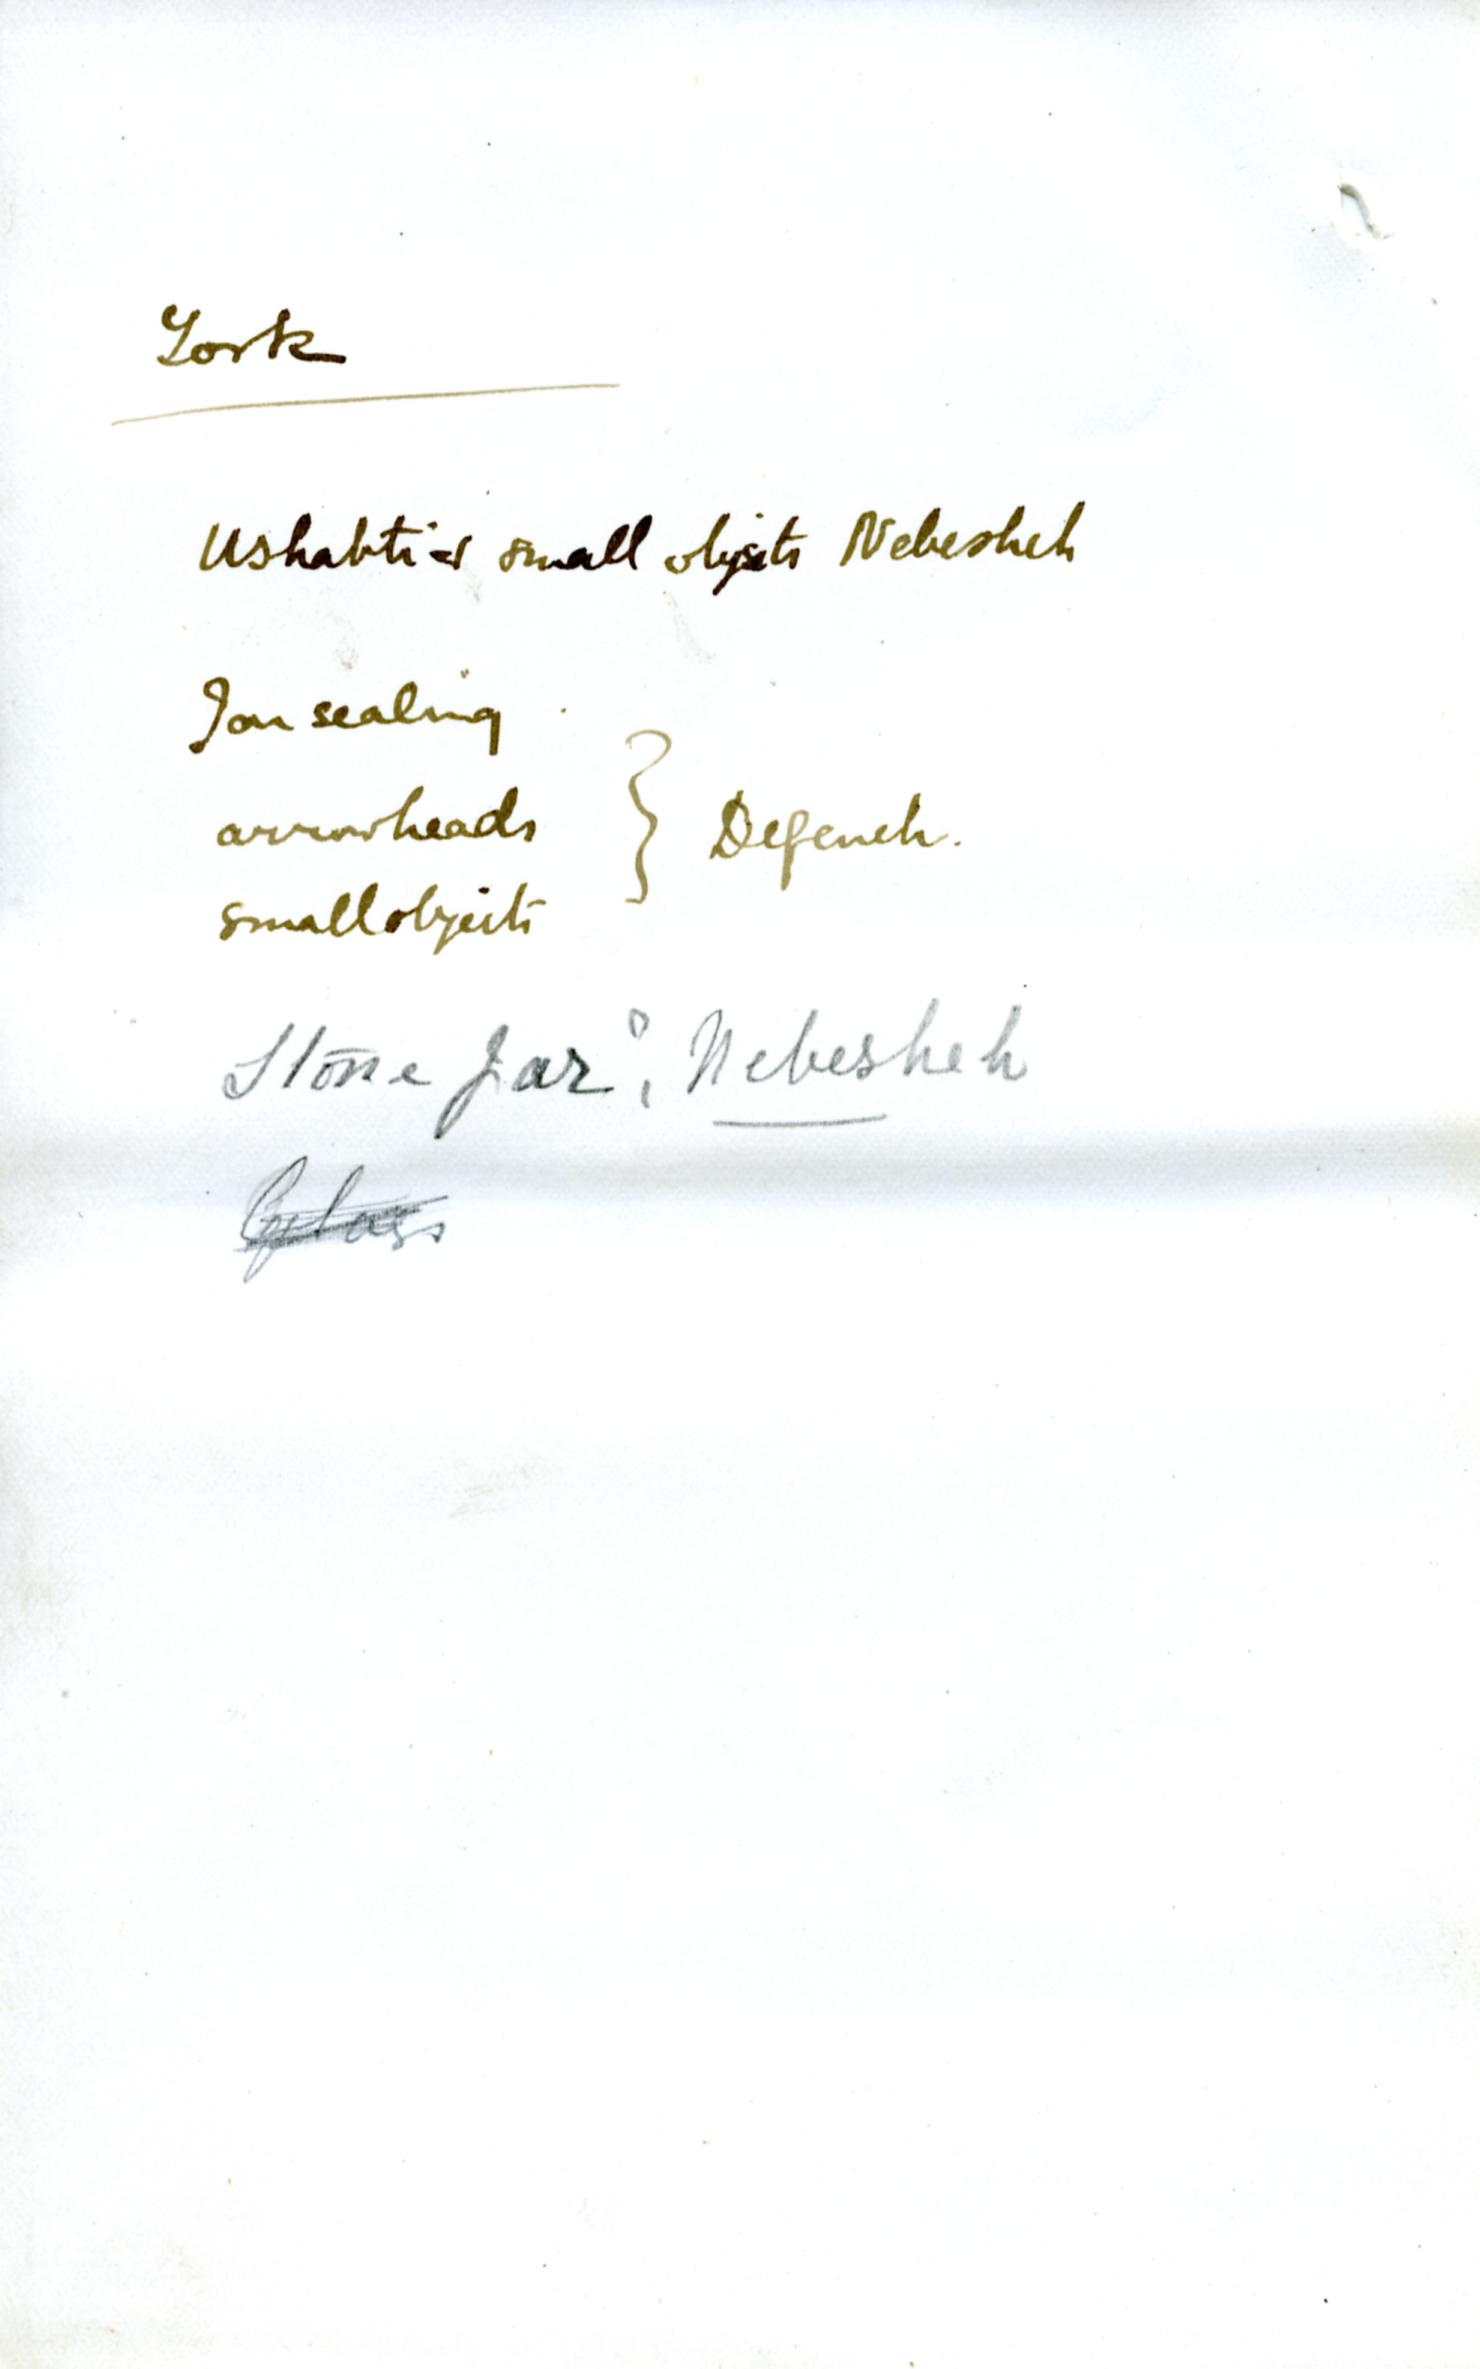 York
Ushabti & small objects Nebesheh
Jar sealing
arrowheads } Defeneh.
small objects
Stone Jar?, Nebesheh